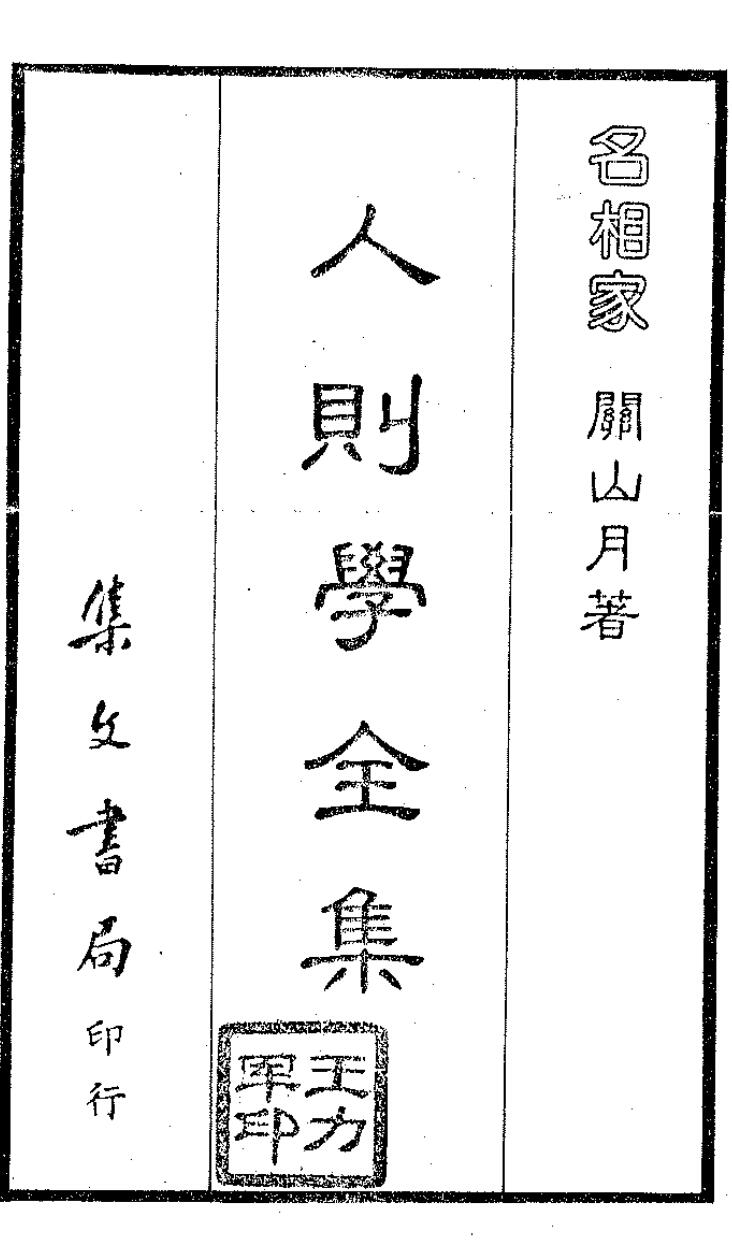 名相家 關山月著
人則學全集
王力軍印
集文書局印行